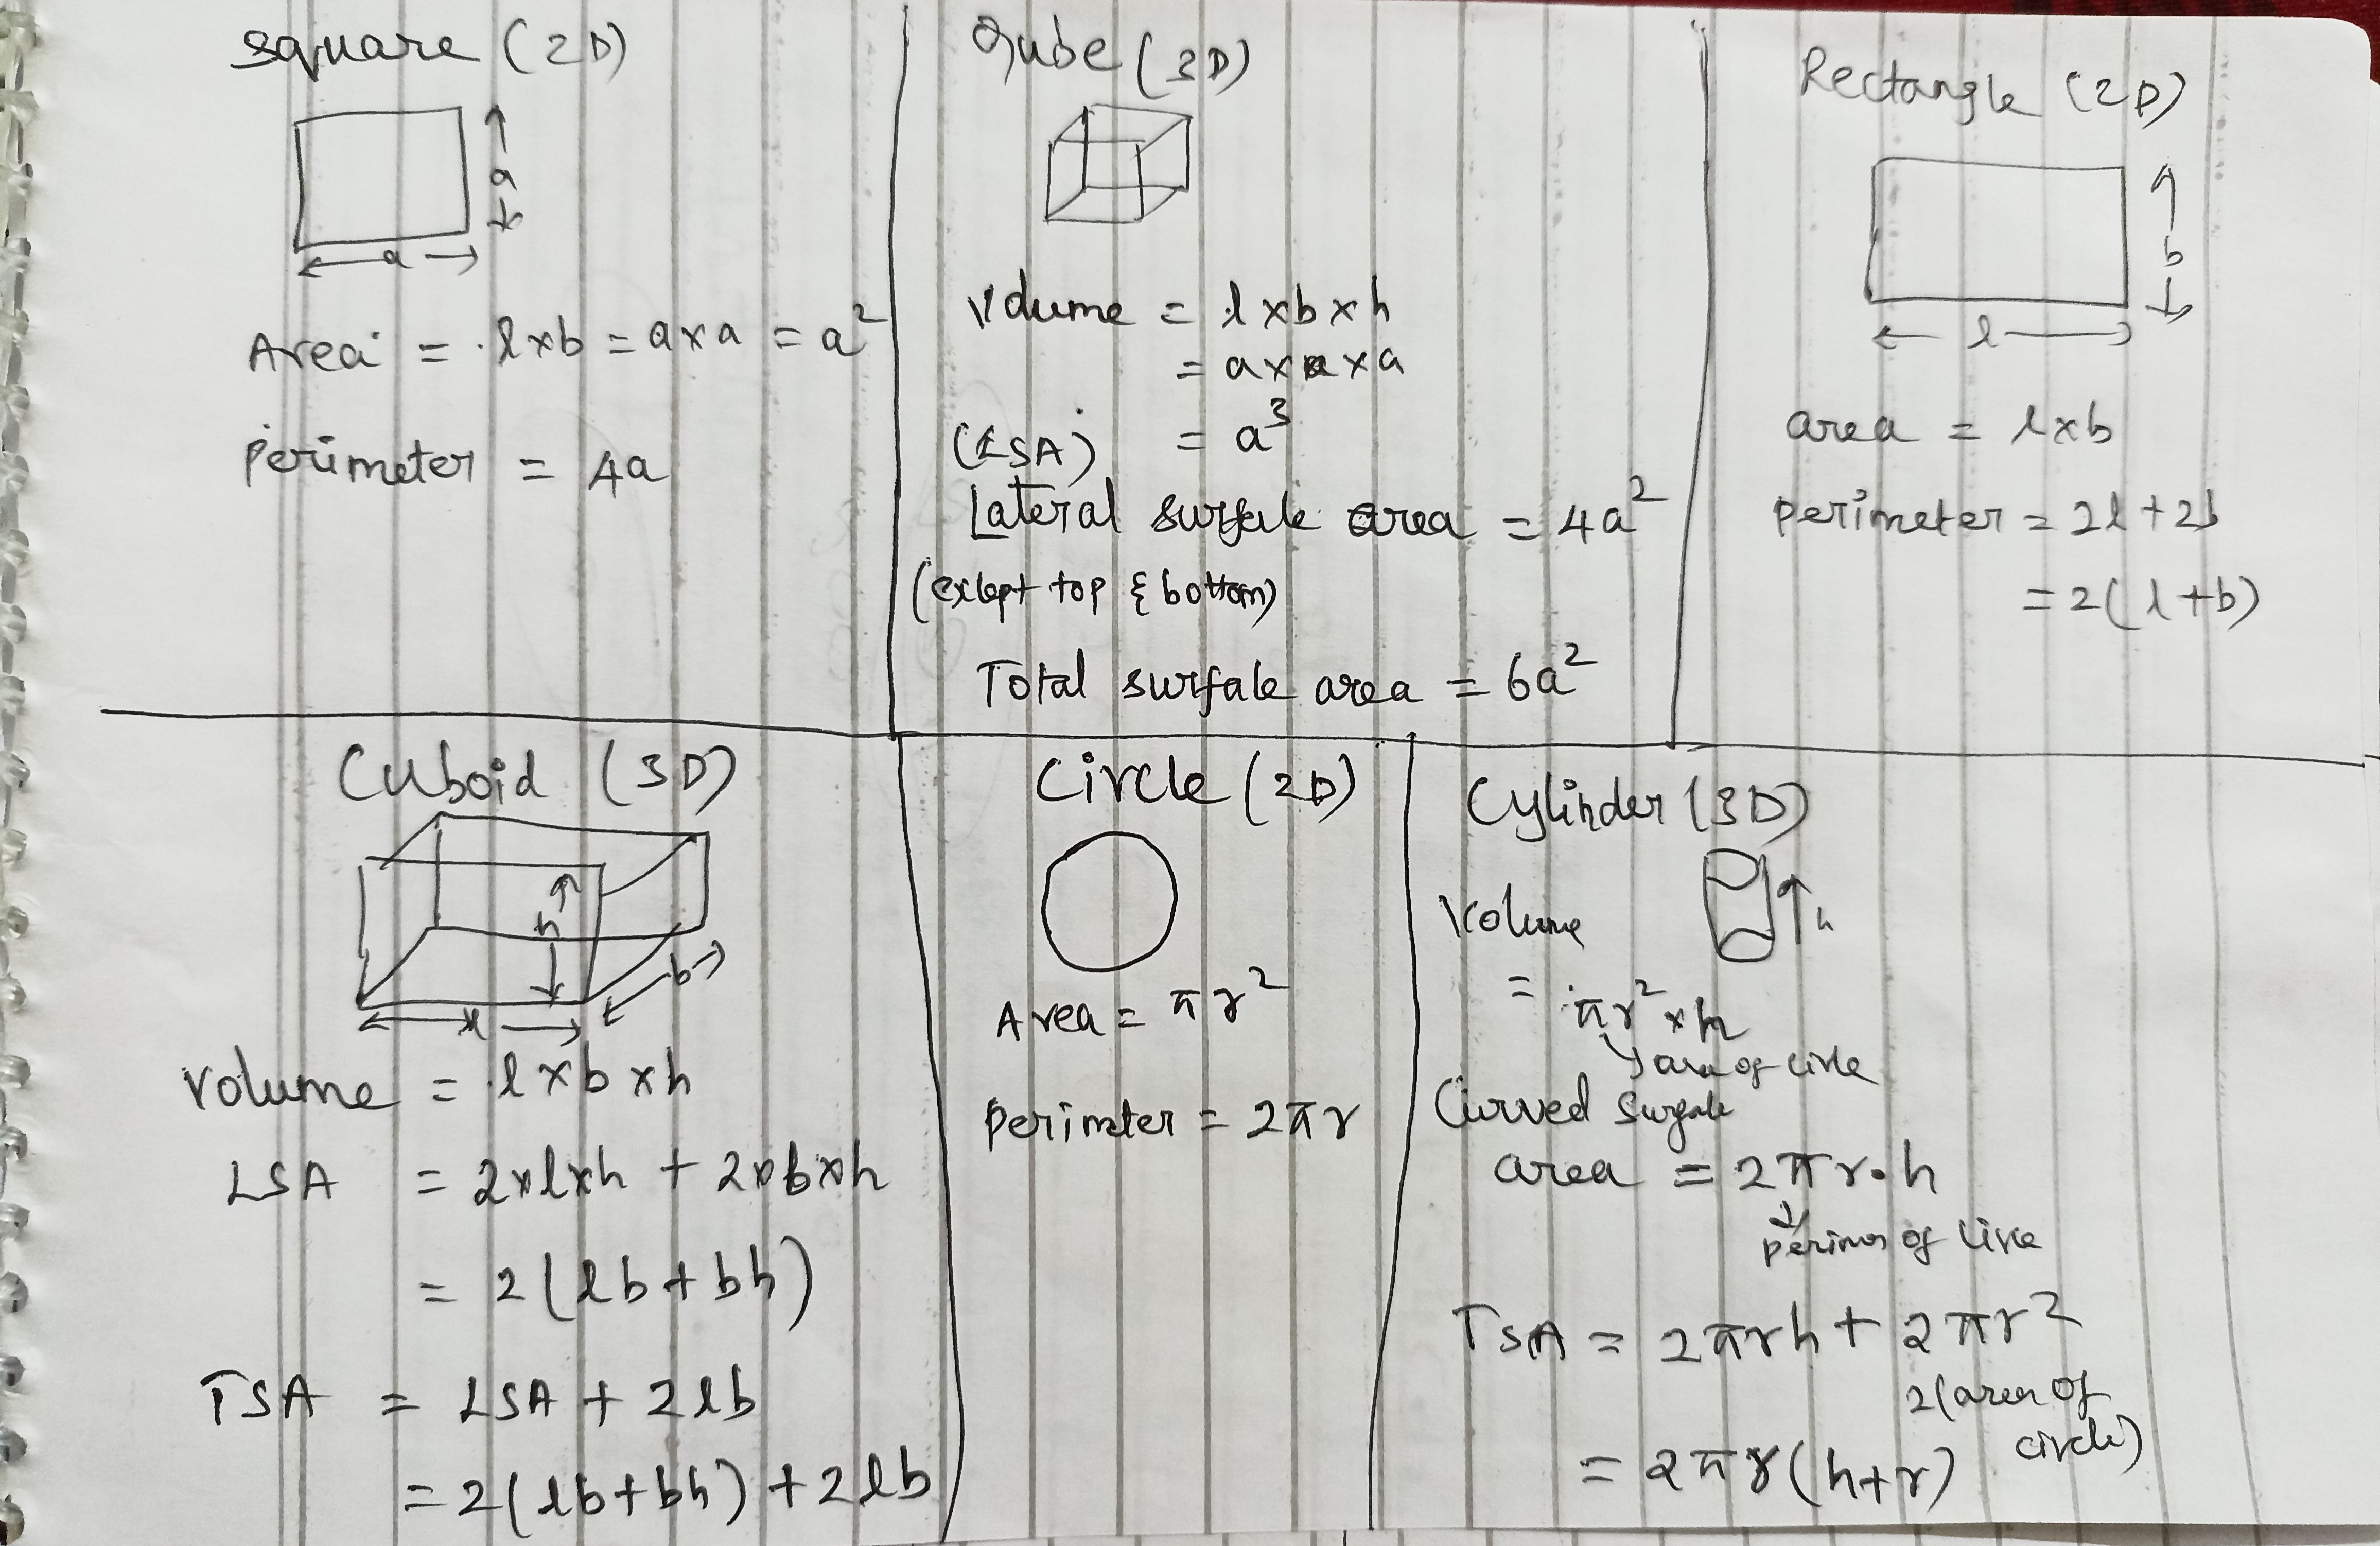 square (2D)
a
a
Area = l×b = a×a = a²
perimeter = 4a
Qube (3D)
Volume = l×b×h
= a×a×a
= a³
(LSA)
Lateral surface area = 4a²
(except top & bottom)
Total surface area = 6a²
Rectangle (2D)
b
l
area = l×b
perimeter = 2l+2b
= 2(l+b)
Cuboid (3D)
h
b
l
volume = l×b×h
LSA = 2×l×h + 2×b×h
= 2(lb+bh)
TSA = LSA + 2lb
= 2(lb+bh) + 2lb
Circle (2D)
Area = πr²
perimeter = 2πr
Cylinder (3D)
h
Volume
= πr²×h
area of circle
Curved surface
area = 2πr.h
perimer of circe
TSA = 2πrh + 2πr²
2(area of
circle)
= 2πr(h+r)